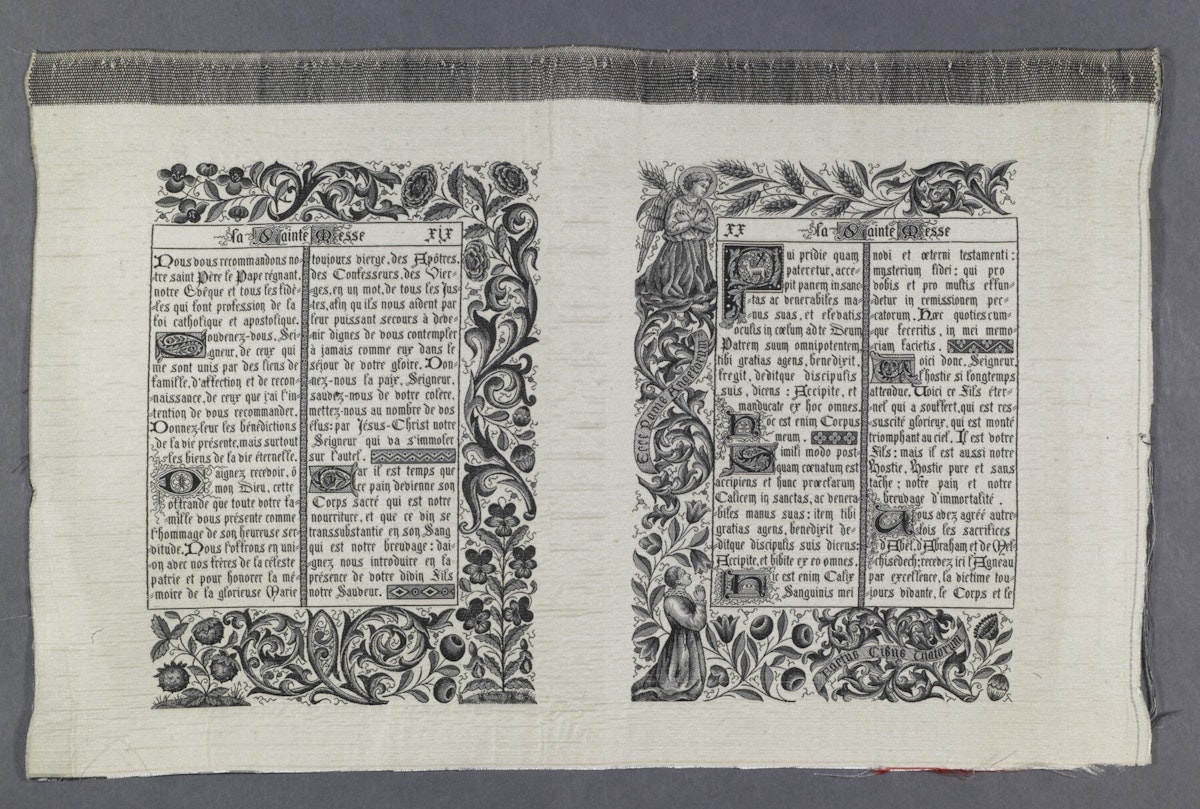 La Sainte Messe xix
Nous vous recommandons no=
tre saint Père le Pape régnant,
notre Evêque et tous les fidè=
les qui font profession de la
foi catholique et apostolique.
Souvenez-vous, Sei=
gneur, de ceux qui
me sont unis par des liens de
famille, d'affection et de recon=
naissance, de ceux que j'ai l'in=
tention de vous recommander.
Donnez-leur les bénédictions
de la vie présente, mais surtout
les biens de la vie éternelle.
Daignez recevoir, ô
mon Dieu, cette
offrande que toute votre fa=
mille vous présente comme
l'hommage de son heureuse ser=
vitude. Nous l'offrons en uni=
on avec nos frères de la céleste
patrie et pour honorer la mé=
moire de la glorieuse Marie
toujours vierge, des Apôtres,
des Confesseurs, des Vier=
ges, en un mot, de tous les Jus=
tes, afin qu'ils nous aident par
leur puissant secours à deve=
nir dignes de vous contempler
à jamais comme eux dans le
séjour de votre gloire. Don=
nez-nous la paix, Seigneur,
sauvez-nous de votre colère,
mettez-nous au nombre de vos
élus: par Jésus-Christ notre
Seigneur qui va s'immoler
sur l'autel.
Car il est temps que
ce pain devienne son
Corps sacré qui est notre
nourriture, et que ce vin se
transsubstantie en son Sang
qui est notre breuvage: dai=
gnez nous introduire en la
présence de votre divin Fils
notre Sauveur.
XX La Sainte Messe
Qui pridie quam
pateretur, acce=
pit panem in sanc=
tas ac venerabiles ma=
nus suas, et elevatis
oculis in cœlum ad te Deum
Patrem suum omnipotentem,
tibi gratias agens, benedixit,
fregit, deditque discipulis
suis, dicens: Accipite, et
manducate ex hoc omnes.
Hoc est enim Corpus
meum.
Simili modo post=
quam cœnatum est
accipiens et hunc præclarum
Calicem in sanctas, ac venera=
biles manus suas: item tibi
gratias agens, benedixit de=
ditque discipulis suis dicens:
Accipite, et bibite ex eo omnes.
Hic est enim Calix
Sanguinis mei
novi et æterni testamenti:
mysterium fidei: qui pro
vobis et pro multis effun=
detur in remissionem pec=
catorum. Hæc quotiescum=
que feceritis, in mei memo=
riam facietis.
Voici donc, Seigneur,
l'hostie si longtemps
attendue. Voici ce Fils éter=
nel qui a souffert, qui est res=
suscité glorieux, qui est monté
triomphant au ciel. Il est votre
Fils: mais il est aussi notre
Hostie, Hostie pure et sans
tache; notre pain et notre
breuvage d'immortalité.
Vous avez agréé autre=
fois les sacrifices
d'Abel, d'Abraham et de Mel=
chisedech; recevez ici l'Agneau
par excellence, la victime tou=
jours vivante, le Corps et le
Ecce Panis Angelorum
Factus Cibus Viatorum